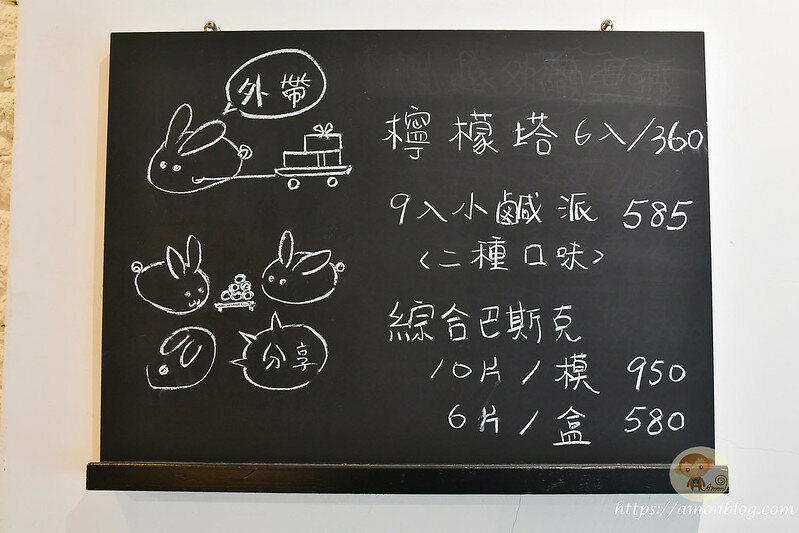 外帶
檸檬塔 6入/360
9入小鹹派 585
<二種口味>
綜合巴斯克
10片/模 950
6片/盒 580
分享
https://amonblog.com